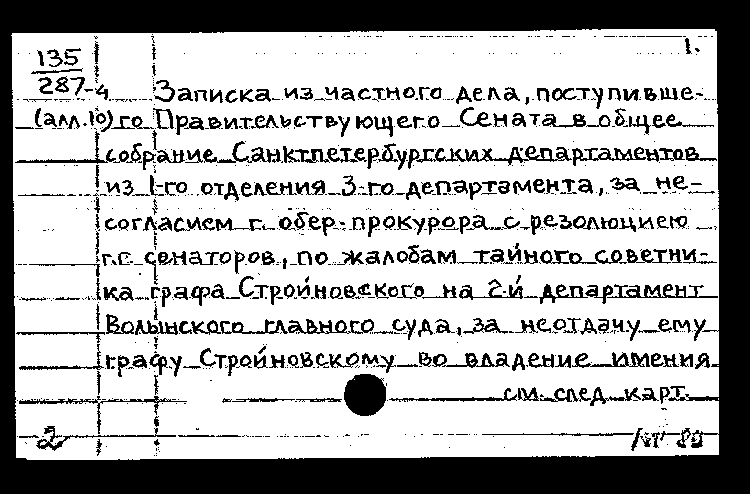 1.
135
287-4 Записка из частного дела, поступивше-
(алл.10) го Правительствующего Сената в общее
собрание Санктпетербургских департаментов
из 1-го отделения 3-го департамента, за не-
согласием г. обер-прокурора с резолюциею
г.г. сенаторов, по жалобам тайного советни-
ка графа Стройновского на 2-й департамент
Волынского главного суда, за неотдачу ему
графу Стройновскому во владение имения
см. след. карт.
2